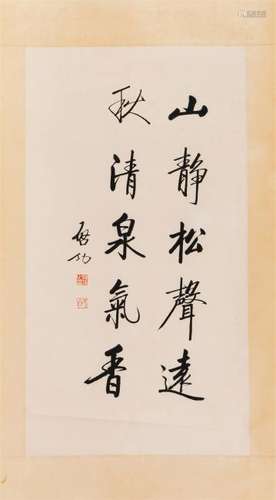 山靜松聲遠
秋清泉氣香
啟功